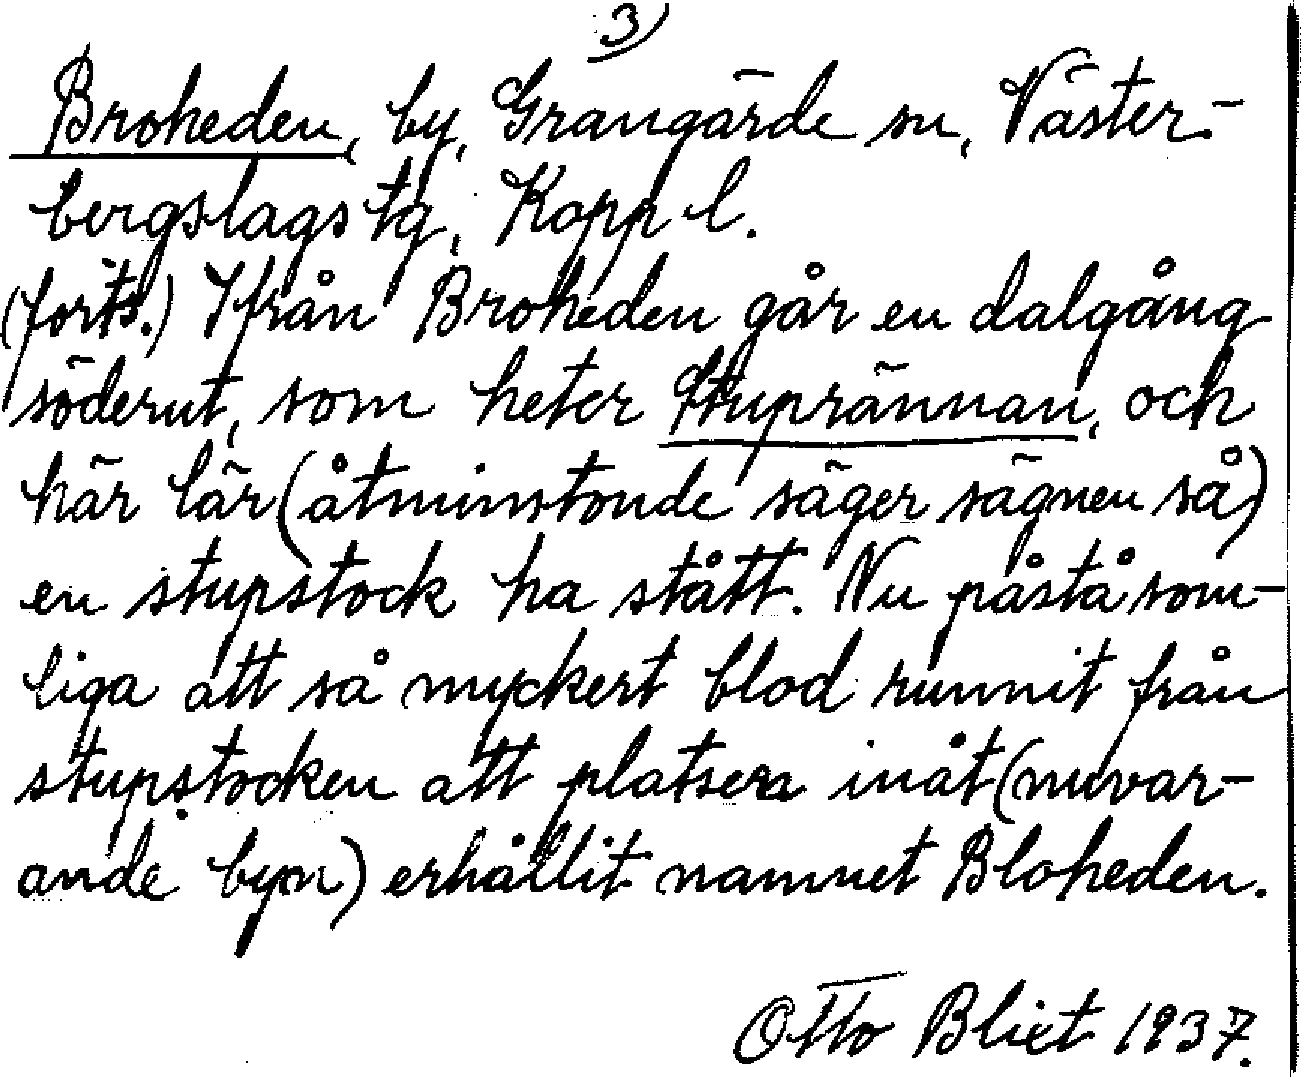 3)
Broheden, by, Grangärde sn, Väster-
bergslags tg, Kopp l.
(forts.) Ifrån Broheden går en dalgång
söderut, som heter Stuprännan, och
här lär (åtminstonde säger sägnen så)
en stupstock ha stått. Nu påstå som-
liga att så myckert blod runnit från
stupstocken att platsen inåt (nuvar-
ande byn) erhållit namnet Bloheden.
Otto Blixt 1937.